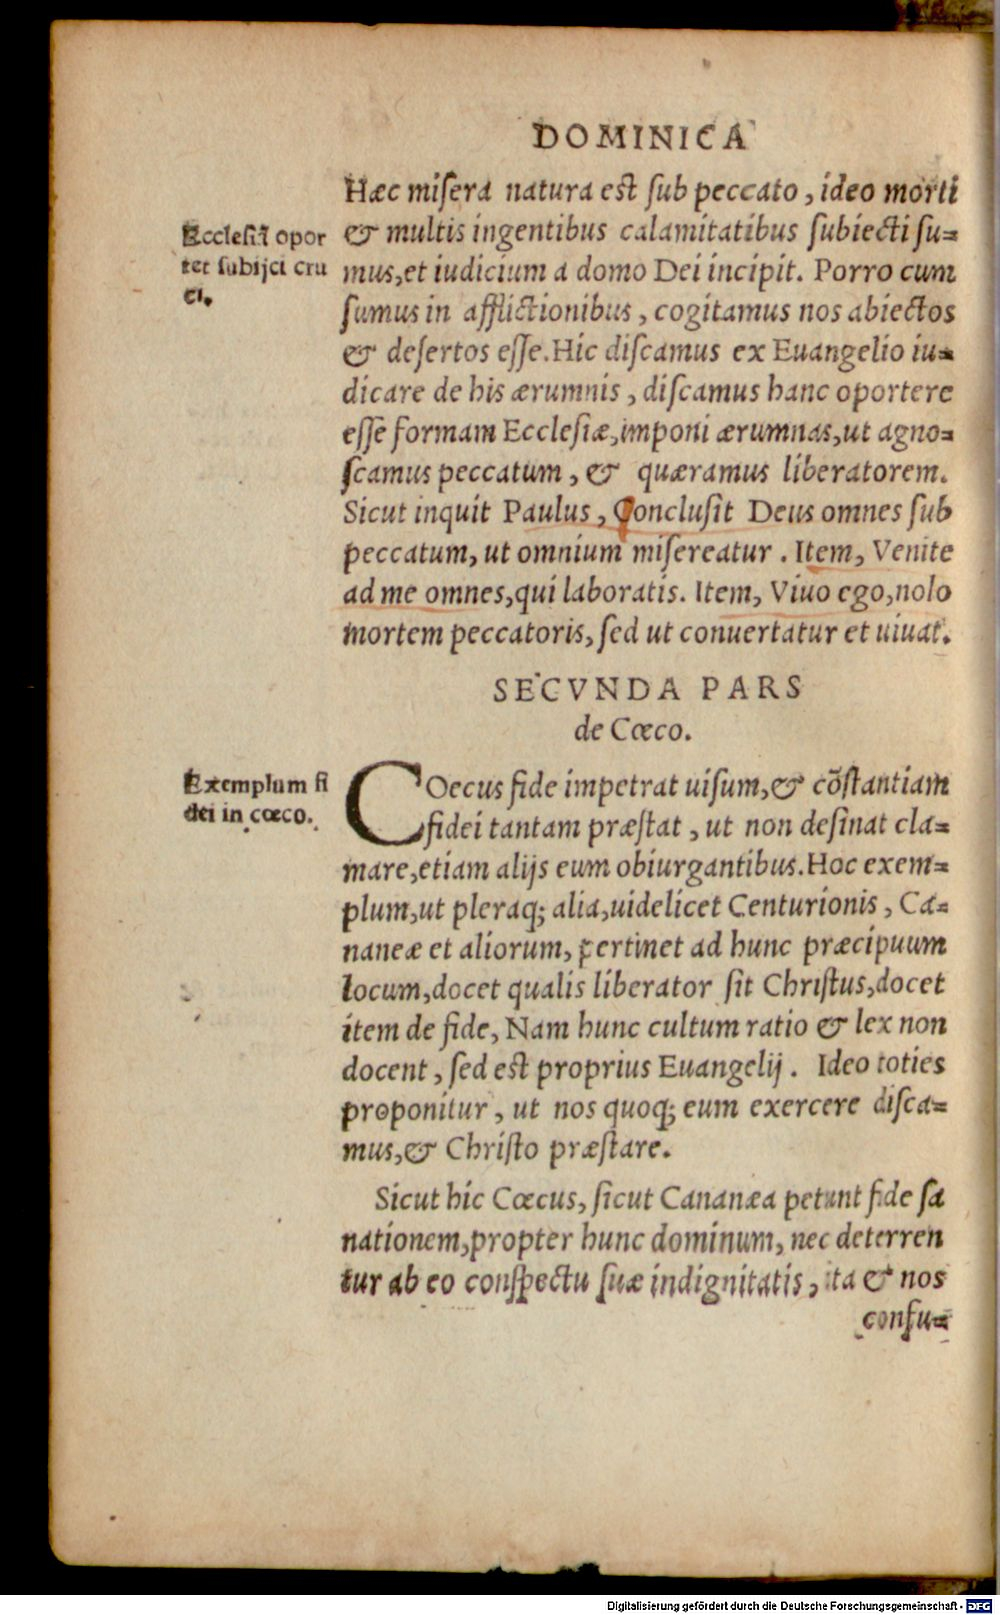 DOMINICA
Hæc misera natura est sub peccato, ideo morti
& multis ingentibus calamitatibus subiecti su=
mus, et iudicium a domo Dei incipit. Porro cum
sumus in afflictionibus, cogitamus nos abiectos
& desertos esse. Hic discamus ex Euangelio iu=
dicare de his ærumnis, discamus hanc oportere
esse formam Ecclesiæ, imponi ærumnas, ut agno=
scamus peccatum, & quæramus liberatorem.
Sicut inquit Paulus, Conclusit Deus omnes sub
peccatum, ut omnium misereatur. Item, Venite
ad me omnes, qui laboratis. Item, Viuo ego, nolo
mortem peccatoris, sed ut conuertatur et uiuat.
Ecclesiã opor
tet subijci cru
ci.
SECVNDA PARS
de Cœco.
Exemplum fi
dei in cœco.
COecus fide impetrat uisum, & cõstantiam
fidei tantam præstat, ut non desinat cla=
mare, etiam alijs eum obiurgantibus. Hoc exem=
plum, ut pleraq; alia, uidelicet Centurionis, Ca=
naneæ et aliorum, pertinet ad hunc præcipuum
locum, docet qualis liberator sit Christus, docet
item de fide, Nam hunc cultum ratio & lex non
docent, sed est proprius Euangelij. Ideo toties
proponitur, ut nos quoq; eum exercere disca=
mus, & Christo præstare.
Sicut hic Cœcus, sicut Cananæa petunt fide sa
nationem, propter hunc dominum, nec deterren
tur ab eo conspectu suæ indignitatis, ita & nos
confu=
Digitalisierung gefördert durch die Deutsche Forschungsgemeinschaft - DFG